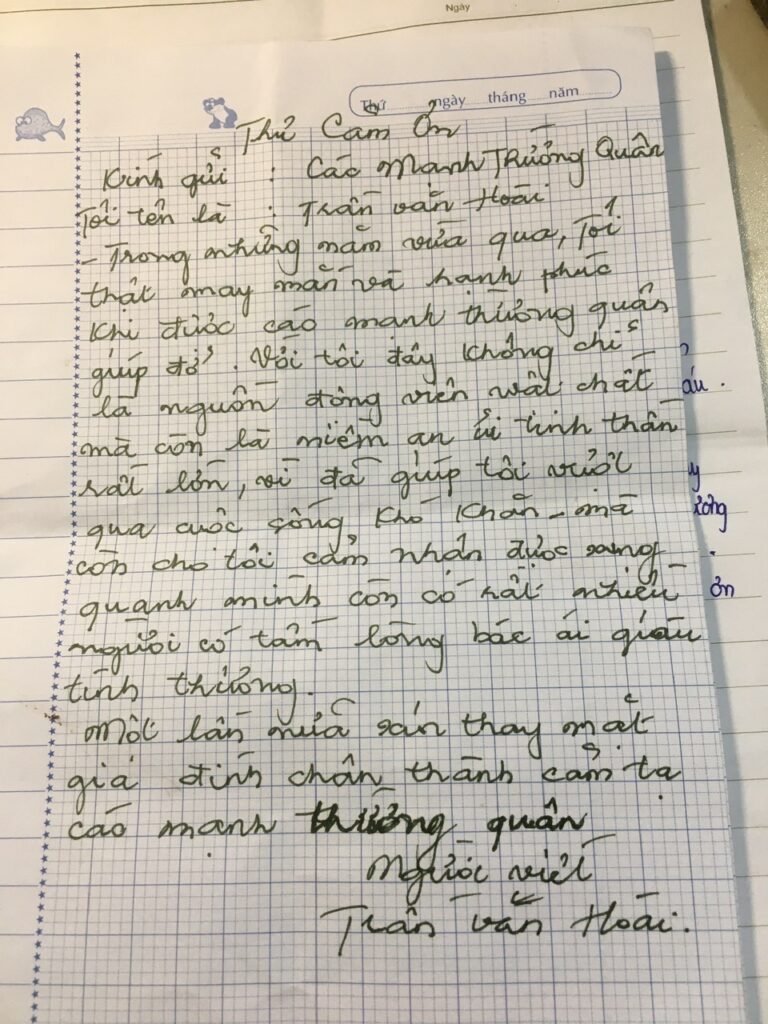 Ngày
Thứ ngày tháng năm
Thư Cảm Ơn
Kính gửi : Các Mạnh Thường Quân
Tôi tên là : Trần Văn Hoài
- Trong những năm vừa qua, Tôi
thật may mắn và hạnh phúc
khi được các mạnh thường quân
giúp đỡ. Với tôi đây không chỉ
là nguồn động viên vật chất
mà còn là niềm an ủi tinh thần
rất lớn, vì đã giúp tôi vượt
qua cuộc sống khó khăn - mà
còn cho tôi cảm nhận được xung
quanh mình còn có rất nhiều
người có tấm lòng bác ái giàu
tình thương.
Một lần nữa thay mặt
gia đình chân thành cảm tạ
các mạnh thường quân
Người viết
Trần Văn Hoài.